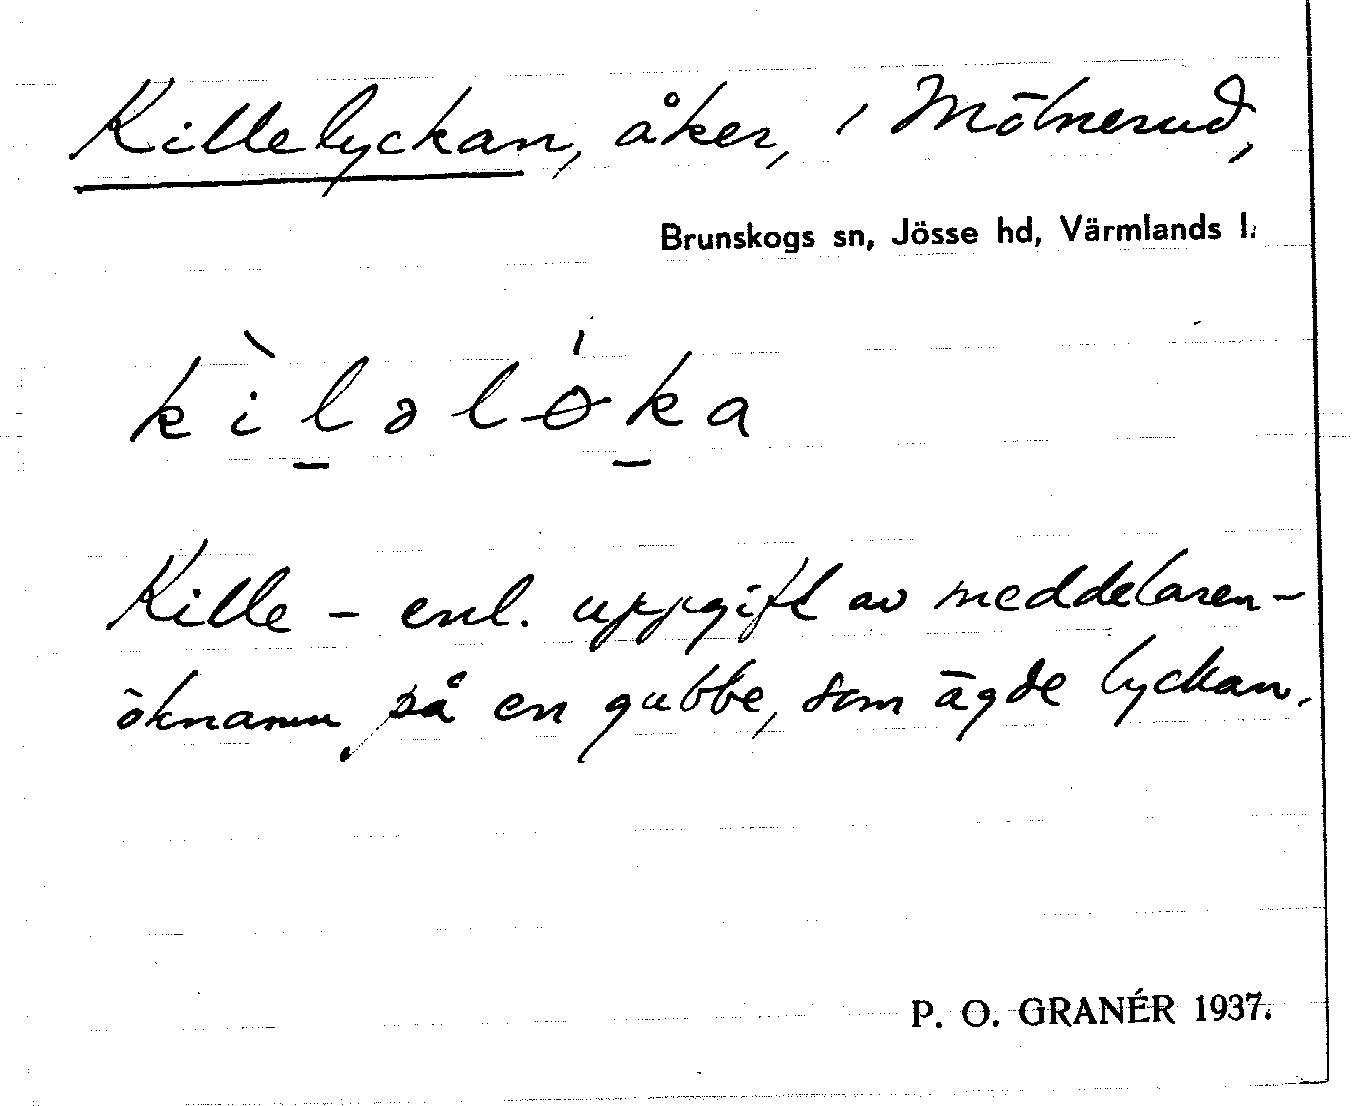 Killelyckan, åker, i Mölnerud,
Brunskogs sn, Jösse hd, Värmlands l.
kìl̠əlɵ́k̠a
Kille – enl. uppgift av meddelaren –
öknamn på en gubbe, som ägde lyckan.
P. O. GRANÉR 1937.